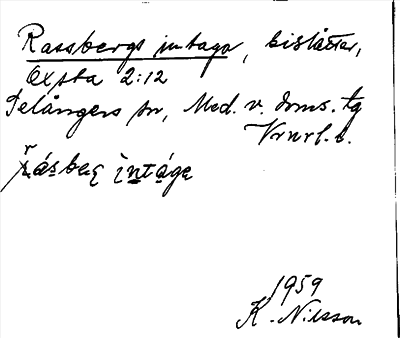 Rassbergs intaga, bislåtter,
Öxsta 2:12
Selångers sn, Med. v. doms. tg
Vrnrl. l.
ràsbeg ìntáge
1959
K. Nilsson